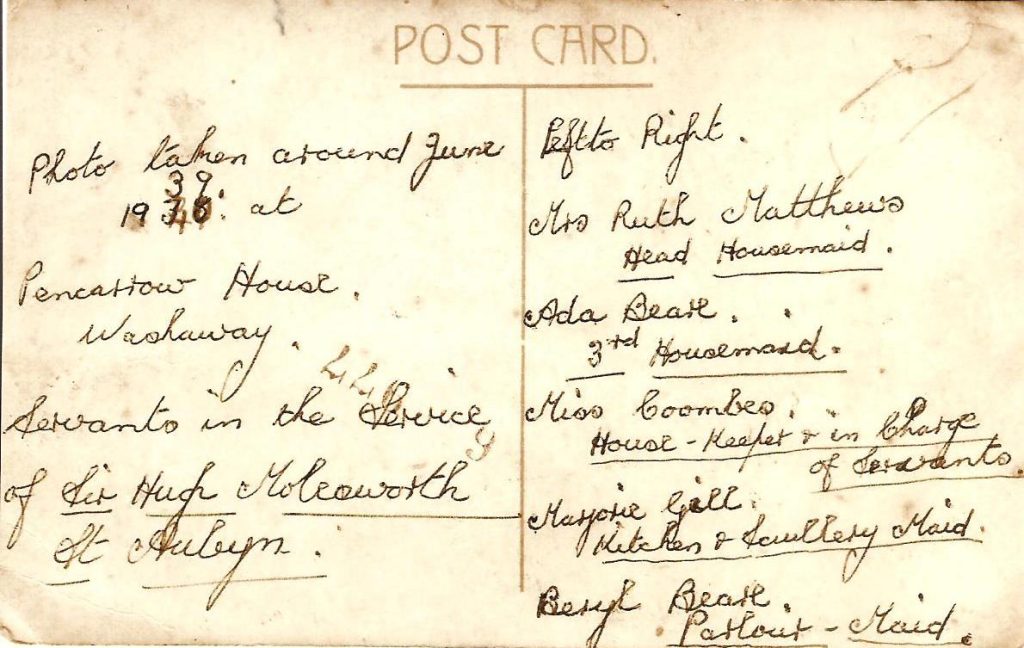 POST CARD.
Photo taken around June
39.
19 at
Pencarrow House.
Washaway.
Servants in the Service
of Sir Hugh Molesworth
St Aubyn.
Left to Right.
Mrs Ruth Matthews
Head Housemaid.
Ada Beare.
3rd Housemaid.
Miss Coombes.
House-Keeper & in Charge
of Servants.
Marjorie Gill.
Kitchen & Scullery Maid.
Beryl Beare.
Parlour-Maid.